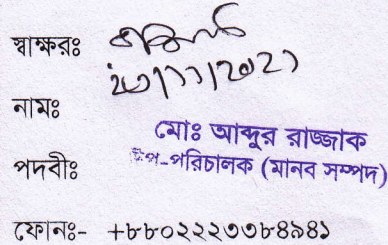 স্বাক্ষরঃ
নামঃ
মোঃ আব্দুর রাজ্জাক
পদবীঃ উপ-পরিচালক (মানব সম্পদ)
ফোনঃ- +৮৮০২২২৩৩৮৪৯৪১